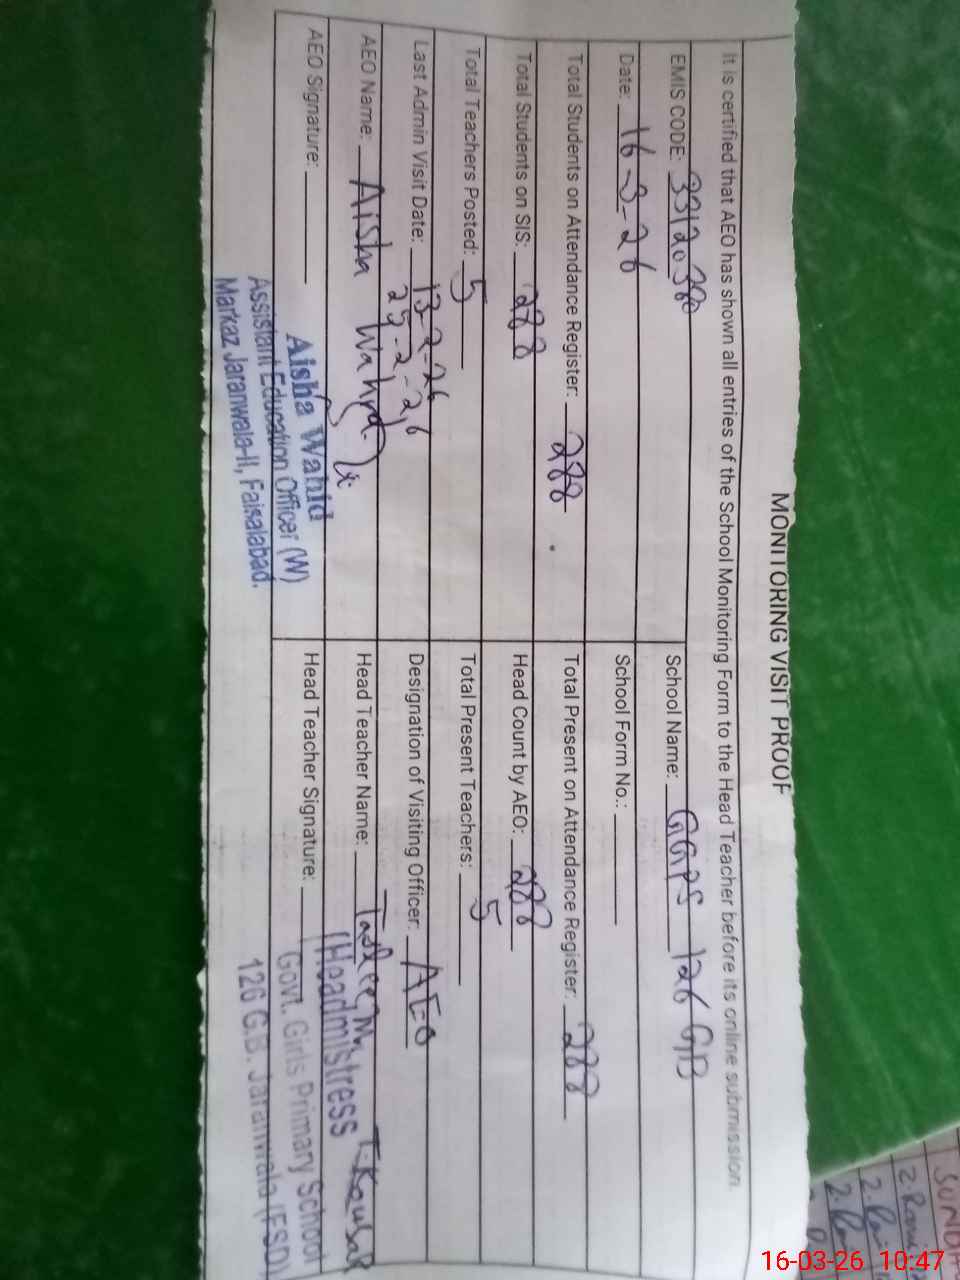 MONITORING VISIT PROOF
It is certified that AEO has shown all entries of the School Monitoring Form to the Head Teacher before its online submission.
EMIS CODE: 33120380
School Name: GGPS 126 GB
Date: 16-3-26
School Form No.:
Total Students on Attendance Register: 288
Total Present on Attendance Register: 288
Total Students on SIS: 288
Head Count by AEO: 288
Total Teachers Posted: 5
Total Present Teachers: 5
Last Admin Visit Date: 13-2-26
25-2-26
Designation of Visiting Officer: AEO
AEO Name: Aisha Wahid
Head Teacher Name: Tasleem Kousar
AEO Signature:
Head Teacher Signature:
Aisha Wahid
Assistant Education Officer (W)
Markaz Jaranwala-II, Faisalabad.
(Headmistress
Govt. Girls Primary School
126 G.B. Jaranwala (FSD)
16-03-26 10:47